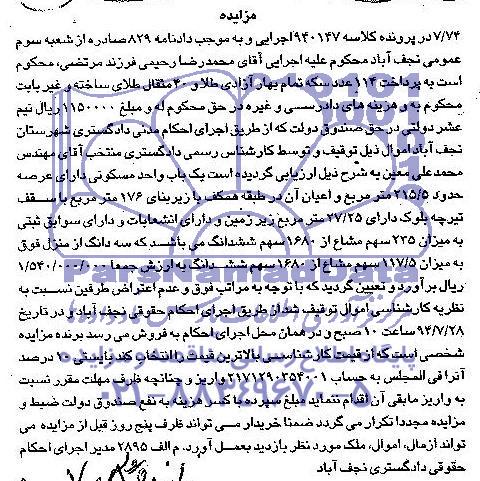 مزایده
۷/۷۴ در پرونده کلاسه ۹۴۰۱۴۷ اجرایی و به موجب دادنامه ۸۲۹ صادره از شعبه سوم
عمومی نجف آباد محکوم علیه اجرایی آقای محمدرضا رحیمی فرزند مرتضی، محکوم
است به پرداخت ۱۱۴ عدد سکه تمام بهار آزادی طلا و ۴۰ مثقال طلای ساخته و غیر بابت
محکوم به و هزینه های دادرسی و غیره در حق محکوم له و مبلغ ۱۱۵۰۰۰۰ ریال نیم
عشر دولتی در حق صندوق دولت که از طریق اجرای احکام مدنی دادگستری شهرستان
نجف آباد اموال ذیل توقیف و توسط کارشناس رسمی دادگستری منتخب آقای مهندس
محمدعلی معین به شرح ذیل ارزیابی گردیده است یک باب واحد مسکونی دارای عرصه
حدود ۲۱۵/۵ متر مربع و اعیان آن در طبقه همکف با زیربنای ۱۷۶ متر مربع با سقف
تیرچه بلوک دارای ۲۷/۲۵ متر مربع زیر زمین و دارای انشعابات و دارای سوابق ثبتی
به میزان ۲۳۵ سهم مشاع از ۱۶۸۰ سهم ششدانگ می باشد که سه دانگ از منزل فوق
به میزان ۱۱۷/۵ سهم مشاع از ۱۶۸۰ سهم ششدانگ به ارزش جمعا ۱/۵۴۰/۰۰۰/۰۰۰
ریال برآورد و تعیین گردید که با توجه به مراتب فوق و عدم اعتراض طرفین نسبت به
نظریه کارشناسی اموال توقیف شد از طریق اجرای احکام حقوقی نجف آباد و در تاریخ
۹۴/۷/۲۸ ساعت ۱۰ صبح و در همان محل اجرای احکام به فروش می رسد برنده مزایده
شخصی است که از قیمت کارشناسی بالاترین قیمت را انتخاب کند بایستی ۱۰ درصد
آنرا فی المجلس به حساب ۲۱۷۱۲۹۰۳۵۴۰۰۱ واریز و چنانچه ظرف مهلت مقرر نسبت
به واریز مابقی آن اقدام ننماید مبلغ سپرده با کسر هزینه به نفع صندوق دولت ضبط و
مزایده مجددا تکرار می گردد ضمنا خریدار می تواند ظرف پنج روز قبل از مزایده می
تواند از مال، اموال، ملک مورد نظر بازدید بعمل آورد. م الف ۲۸۹۵ مدیر اجرای احکام
حقوقی دادگستری نجف آباد
ParsNamadData
۰۲۱-۸۸۳۴۹۶۷۰-۵